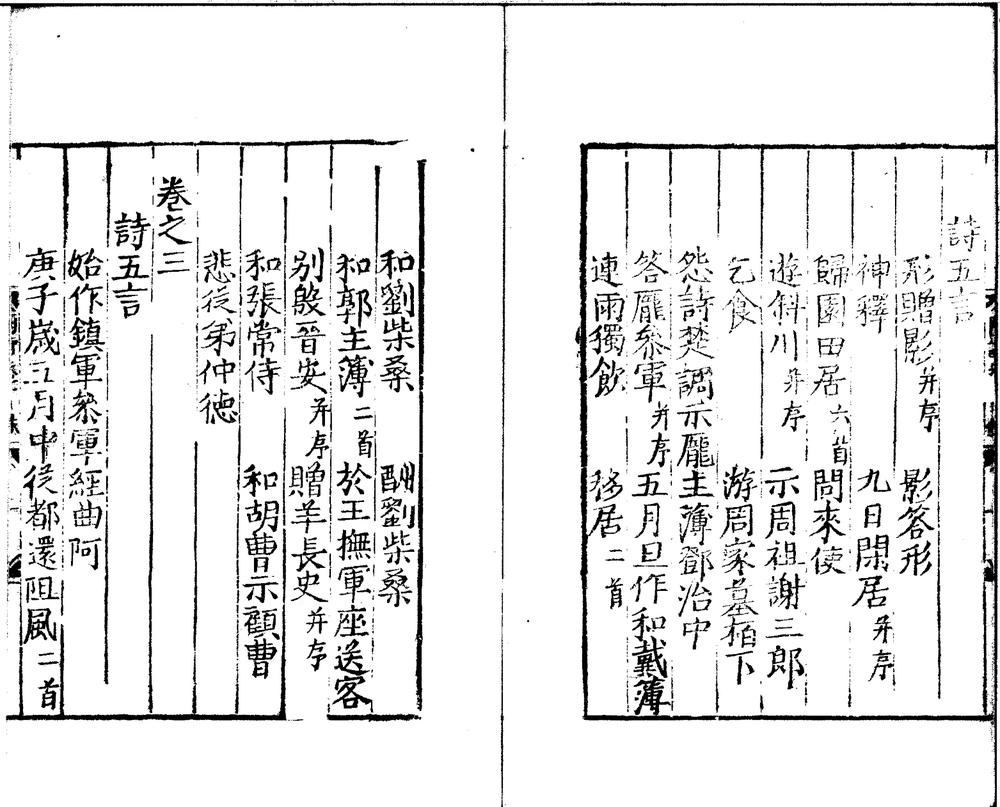 詩五言
形贈影并序　影答形
神釋　九日閑居并序
歸園田居六首　問來使
遊斜川并序　示周祖謝三郎
乞食　游周家墓栢下
怨詩楚調示龐主薄鄧治中
答龐叅軍并序　五月旦作和戴薄
連雨獨飲　移居二首
和劉柴桑　酬劉柴桑
和郭主薄二首　於王撫軍座送客
別殷晉安并序　贈羊長史并序
和張常侍　和胡曹示顧曹
悲從弟仲德
卷之三
詩五言
始作鎮軍叅軍經曲阿
庚子歲五月中從都還阻風二首